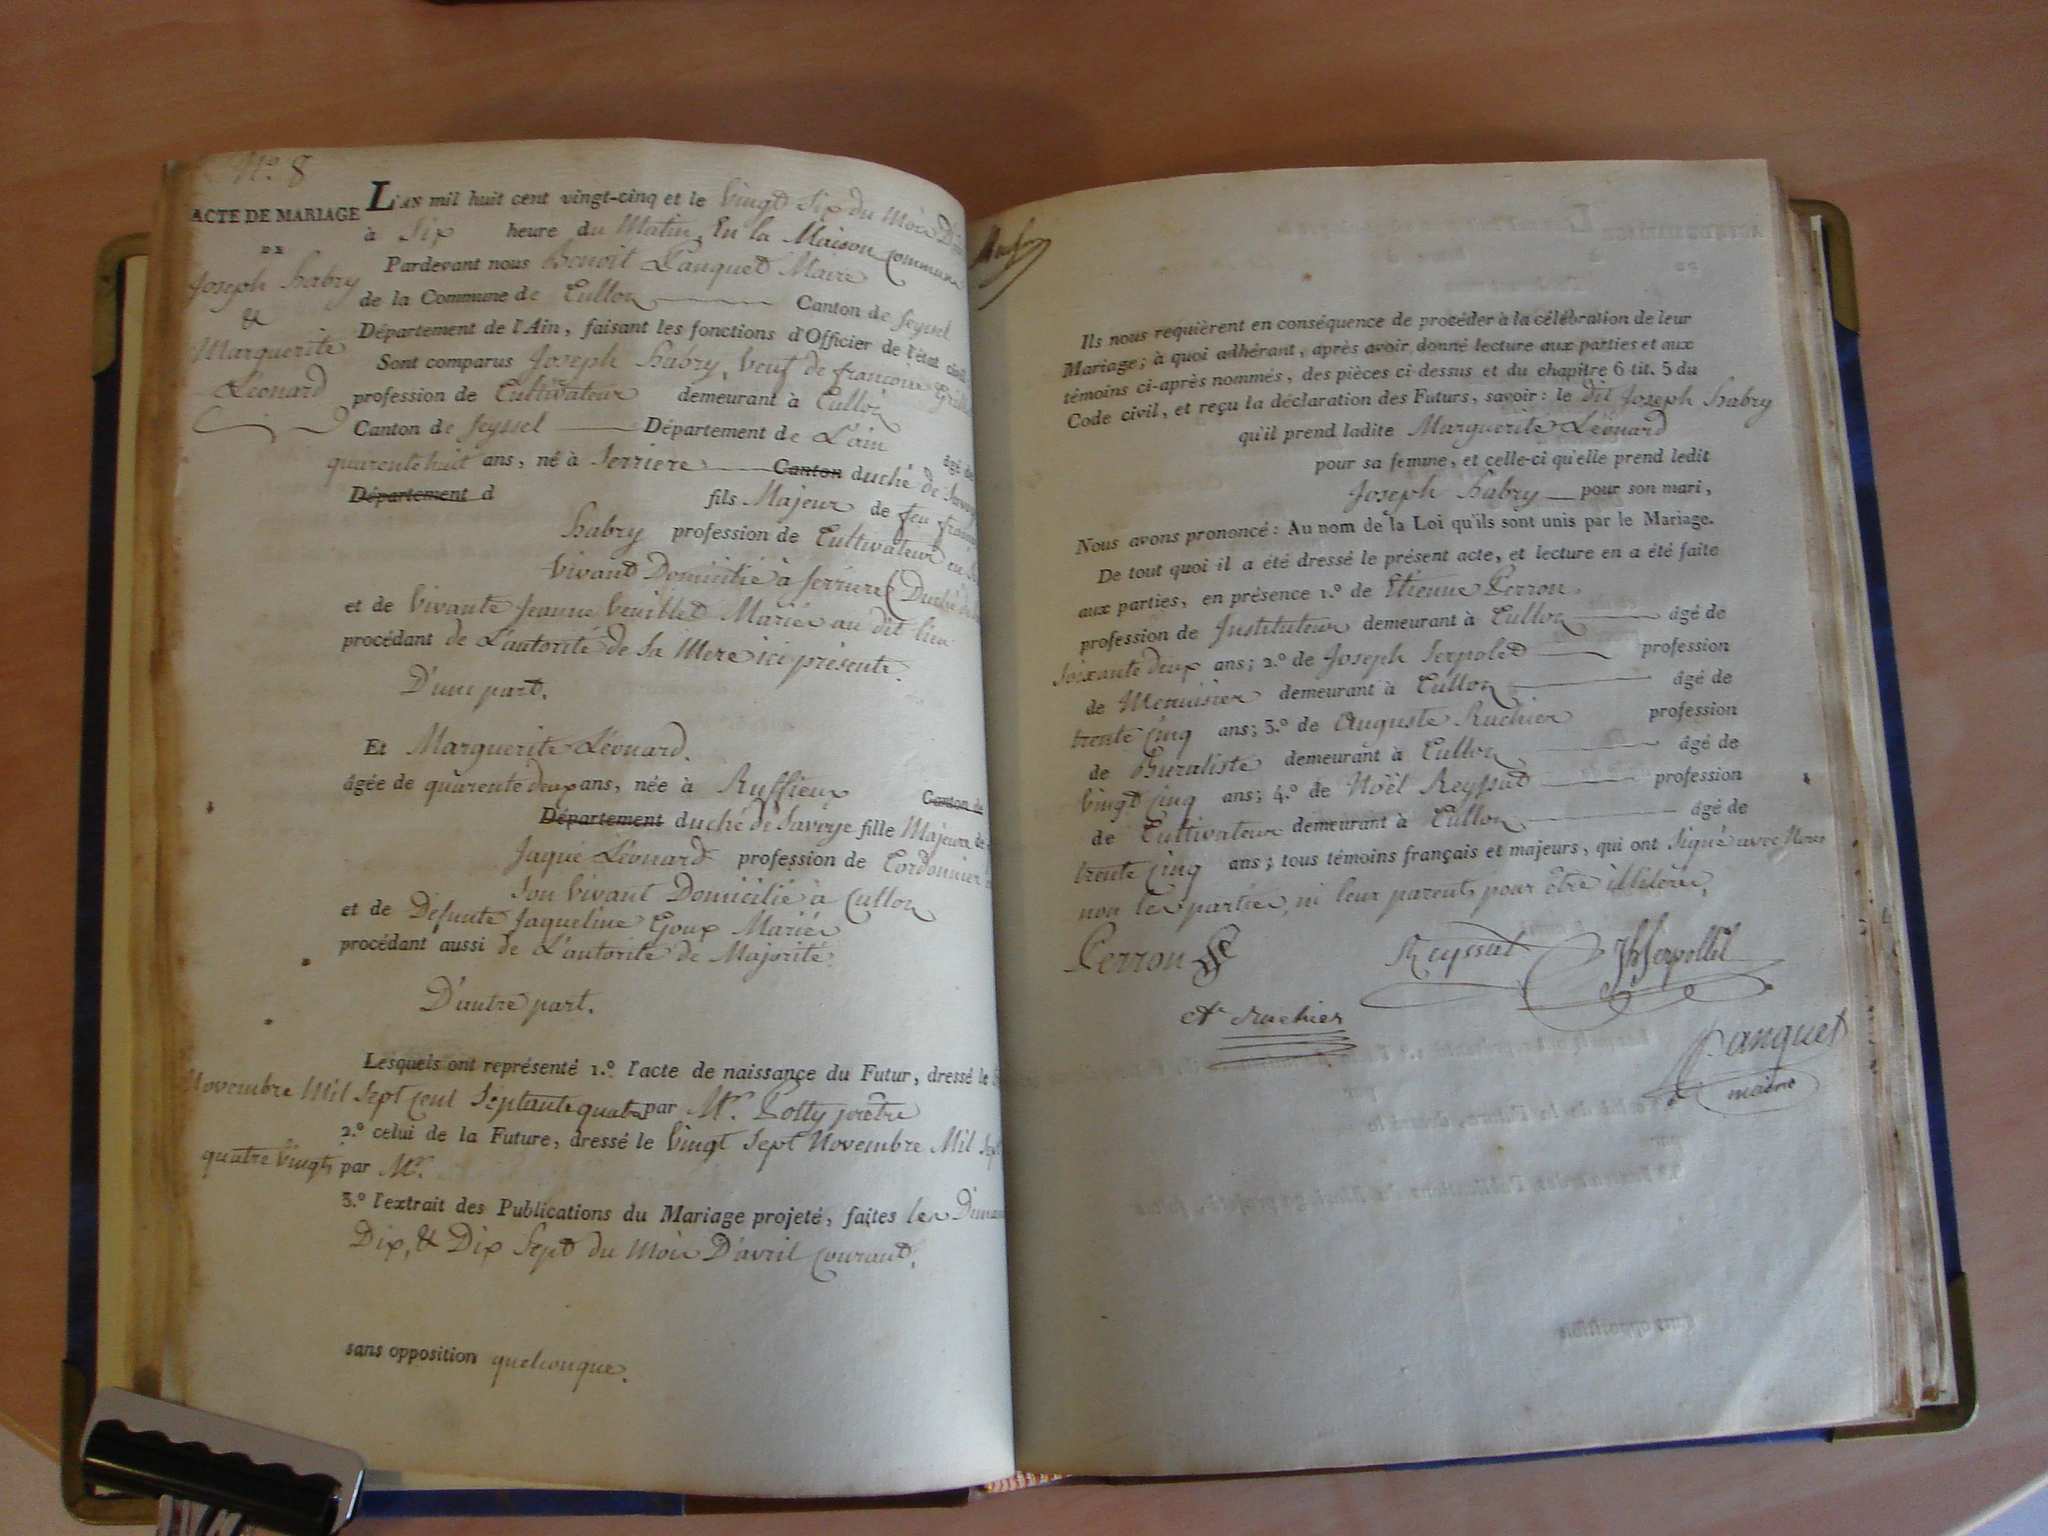 N.o 8
ACTE DE MARIAGE
DE
Joseph habry
&
Marguerite
Léonard
L'AN mil huit cent vingt-cinq et le vingt Six du Mois
à Six heure du Matin, En la Maison Commune
Pardevant nous Benoit Panquet Maire
de la Commune de Culloz Canton de Seyssel
Département de l'Ain, faisant les fonctions d'Officier de l'état civil
Sont comparus Joseph habry, veuf de francoise
profession de Cultivateur demeurant à Culloz
Canton de Seyssel Département de L'ain âgé de
quarente huit ans, né à Serriere Canton duché de Savoye
Département d fils Majeur de feu
habry profession de Cultivateur en
vivant Domicilié à Serriere (Duché de
et de vivante Jeanne Mariés au dit lieu
procédant de L'autorité de Sa Mere ici présente.
D'une part.
Et Marguerite Léonard.
âgée de quarente deux ans, née à Ruffieux Canton de
Département duché de Savoye fille Majeure de
Jaque Léonard profession de Cordonnier
son vivant Domicilié à Culloz
et de Defunte Jaqueline Goux Mariés
procédant aussi de L'autorité de Majorité.
D'autre part.
Lesquels ont représenté 1.o l'acte de naissance du Futur, dressé le
Novembre Mil Sept cent Septante quatre par Mr. prêtre
2.o celui de la Future, dressé le vingt Sept Novembre Mil Sept
quatre vingt, par Mr.
3.o l'extrait des Publications du Mariage projeté, faites les
Dix, & Dix Sept du Mois D'avril courant.
sans opposition quelconque.
Ils nous requièrent en conséquence de procéder à la célébration de leur
Mariage; à quoi adhérant, après avoir donné lecture aux parties et aux
témoins ci-après nommés, des pièces ci-dessus et du chapitre 6 tit. 5 du
Code civil, et reçu la déclaration des Futurs, savoir: le dit Joseph habry
qu'il prend ladite Marguerite Léonard
pour sa femme, et celle-ci qu'elle prend ledit
Joseph habry pour son mari,
Nous avons prononcé: Au nom de la Loi qu'ils sont unis par le Mariage.
De tout quoi il a été dressé le présent acte, et lecture en a été faite
aux parties, en présence 1.o de Etienne Perron,
profession de Instituteur demeurant à Culloz âgé de
soixante deux ans; 2.o de Joseph Serpolet profession
de Menuisier demeurant à Culloz âgé de
trente cinq ans; 3.o de Auguste Ruchier profession
de Buraliste demeurant à Culloz âgé de
vingt cinq ans; 4.o de Noël Reyssat profession
de Cultivateur demeurant à Culloz âgé de
trente cinq ans; tous témoins français et majeurs, qui ont Signé avec Nous
non les parties, ni leur parents, pour être illiterés.
Perron
Reyssat
Jh Serpollet
Ate Ruchier
Panquet
maire